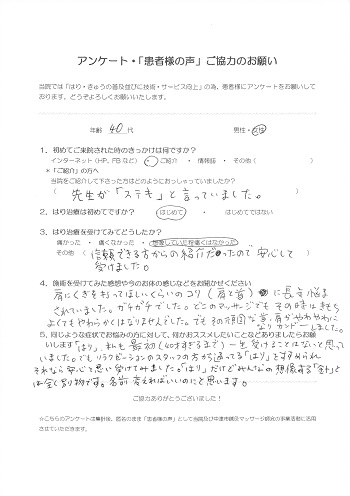 アンケート・「患者様の声」ご協力のお願い
当院では「はり・きゅうの普及並びに技術・サービス向上」の為、患者様にアンケートをお願いして
おります。どうぞよろしくお願いいたします。
年齢 40 代 男性・女性
1．初めてご来院された時のきっかけは何ですか？
インターネット（HP、FBなど）・ご紹介 ・ 情報誌 ・ その他（ ）
*「ご紹介」の方へ
当院をご紹介して下さった方はどのようにおっしゃっていましたか？
（先生が「ステキ」と言っていました。）
2．はり治療は初めてですか？ はじめて ・ はじめてではない
3．はり治療を受けてみてどうでしたか？
痛かった ・ 痛くなかった ・ 想像していた程痛くはなかった
その他（信頼できる方からの紹介だったので安心して
受けました。）
4．施術を受けてみた感想や今のお体の感じなどをお聞かせください
肩にくぎを打ってほしいくらいのコリ（肩と首）に長年悩ま
されていました。ガチガチでした。どこのマッサージでもその時は気もち
よくてもやわらかくはなりませんでした。でもその頑固な首、肩がやわやわに
なりカンドーしました。
5．同じような症状でお悩みの方に対して、何かおススメしたいことなどありましたらお願
いします「はり」私も最初（40才すぎるまで）一生受けることはないと思って
いました。でもリラクゼーションのスタッフの方から通ってる「はり」をすすめられ
それなら安心と思い受けてみました。「はり」だけどみんなの想像する「針」と
は全く別物です。名前考えればいいのにと思います。
ご協力ありがとうございました！
☆こちらのアンケートは集計後、匿名のまま「患者様の声」として当院及び中津市鍼灸マッサージ師会の事業活動に活用
させていただきます。